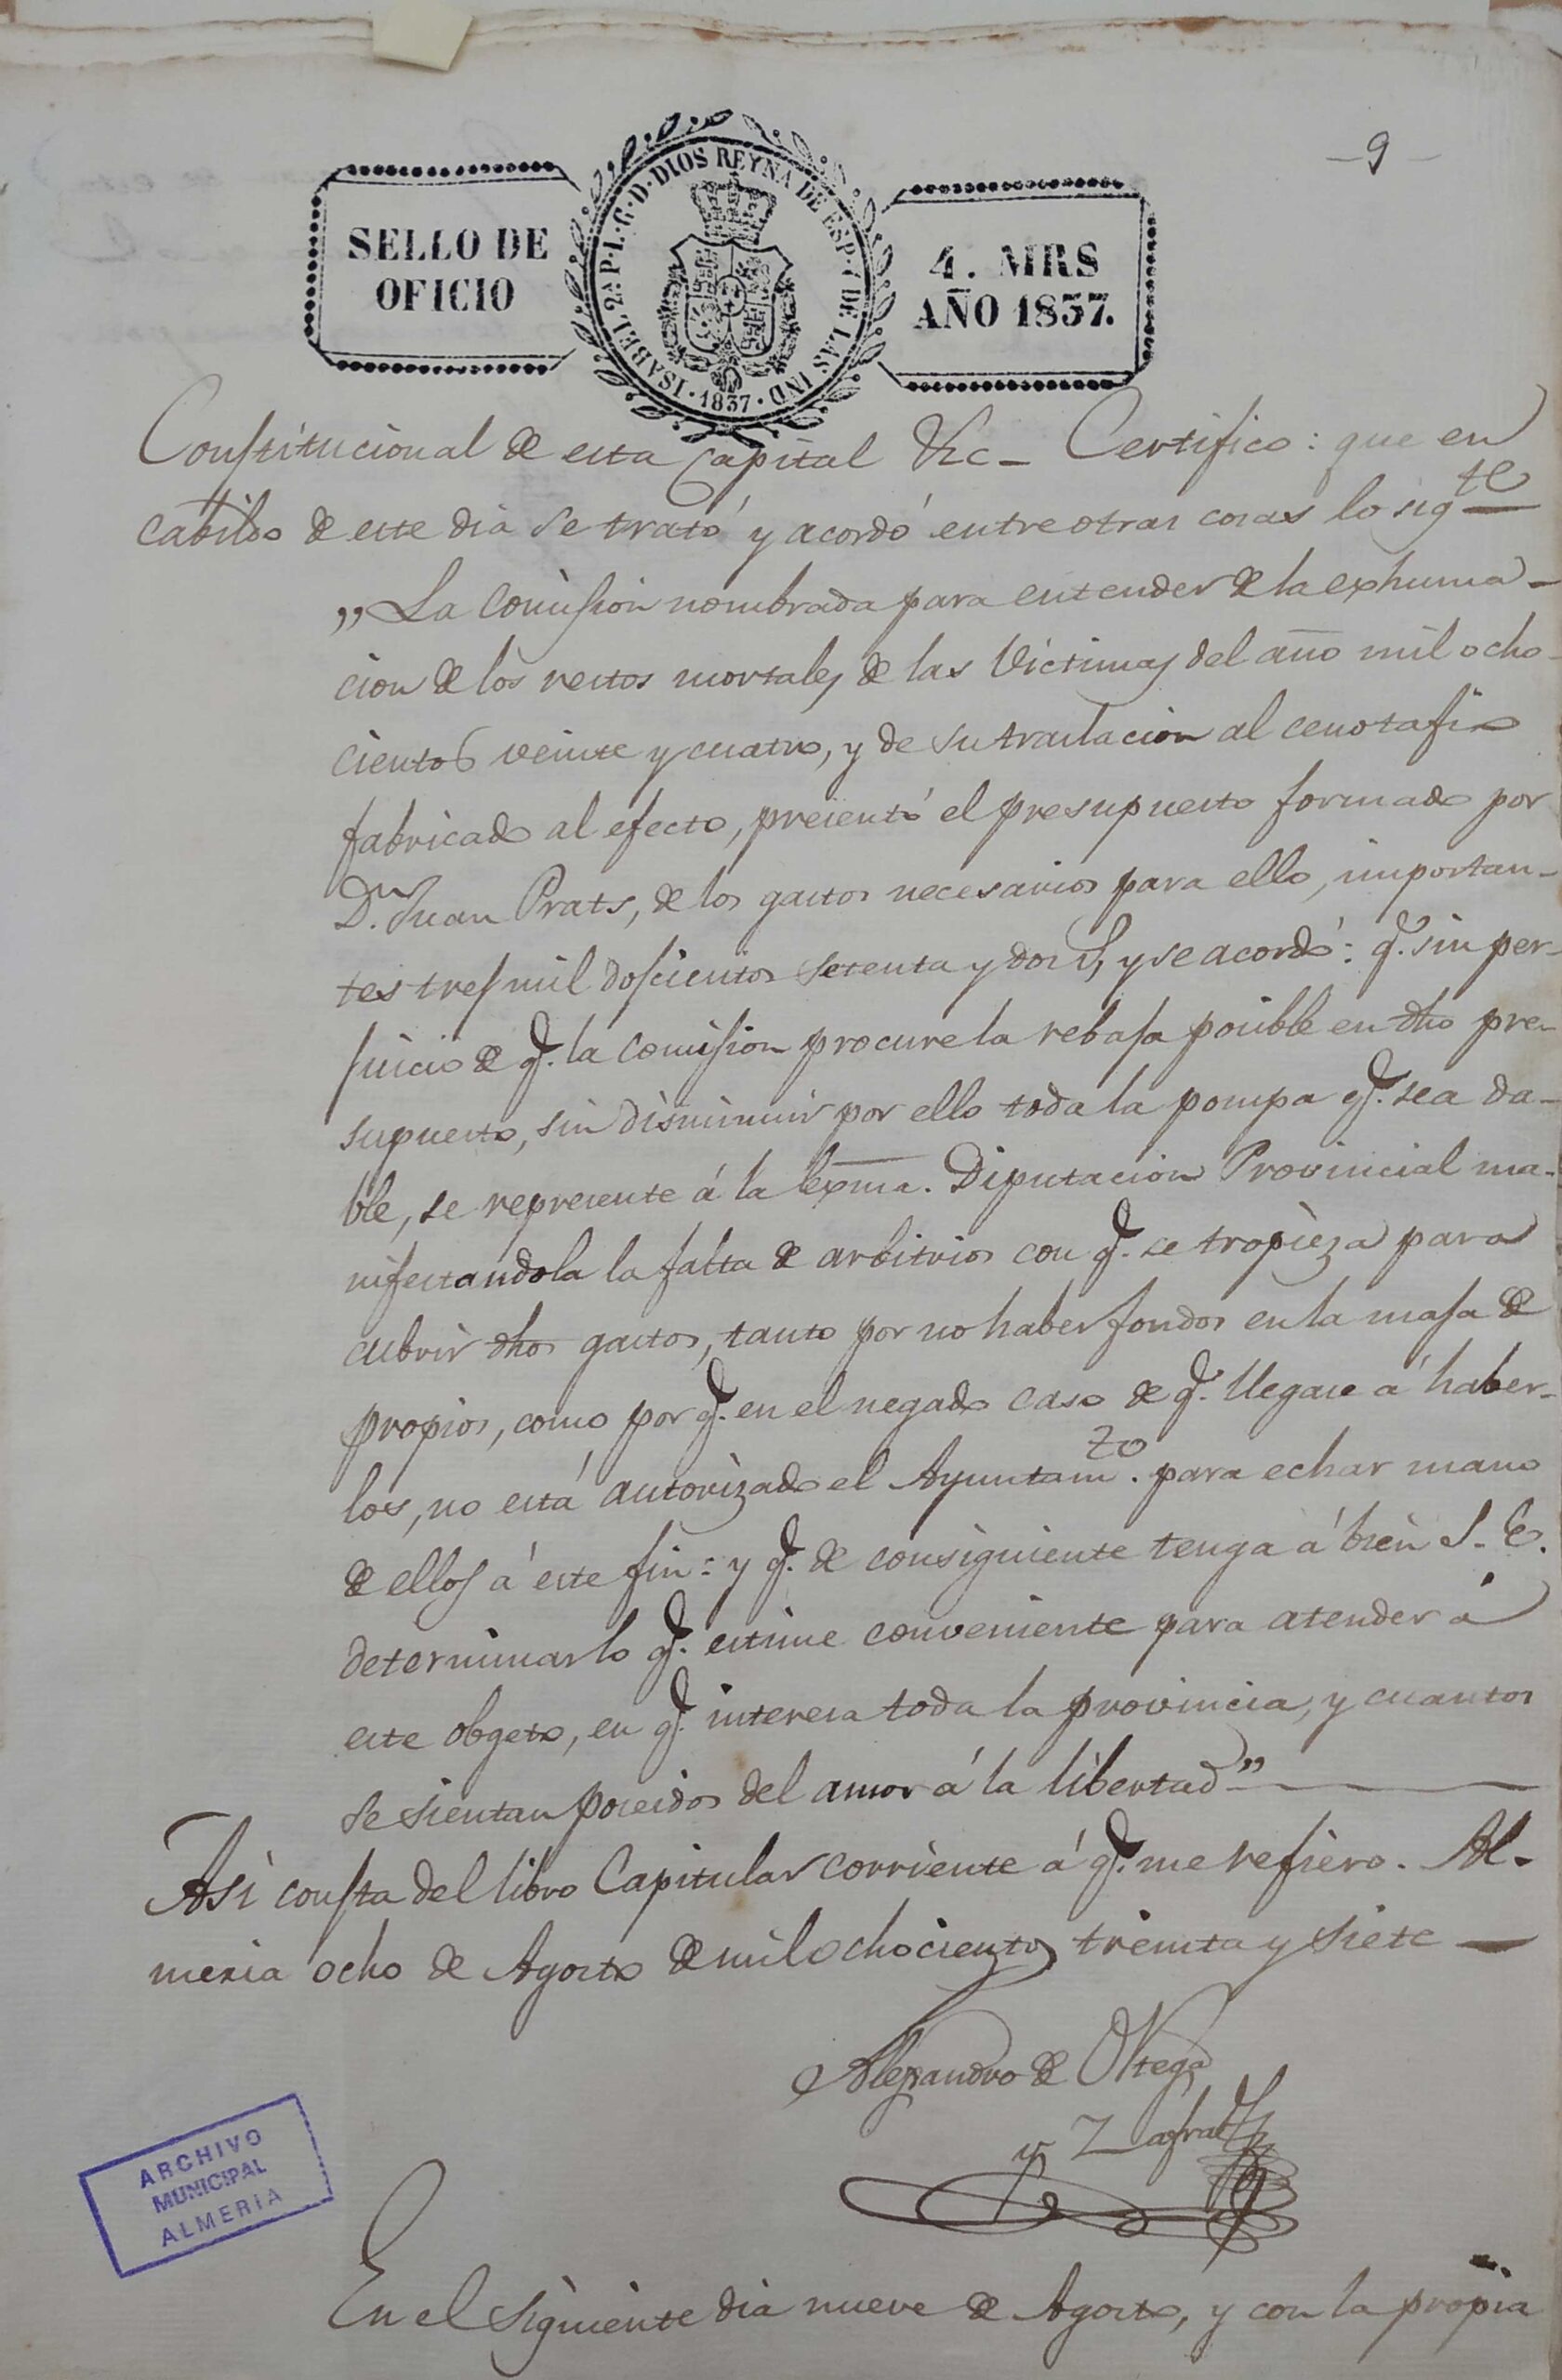 -9-
SELLO DE
OFICIO
ISABEL 2ª P. L. G. D. DIOS REYNA DE ESP. Y DE LAS IND
· 1837 ·
4. MRS
AÑO 1837.
Constitucional de esta Capital &c- Certifico: que en
cabildo de este dia se trató y acordó entre otras cosas lo sigte
„La Comision nombrada para entender de la exhuma-
cion de los restos mortales de las Victimas del año mil ocho-
cientos veinte y cuatro, y de su traslacion al cenotafio
fabricado al efecto, presentó el presupuesto formado por
Dn. Juan Prats, de los gastos necesarios para ello, importan-
tes tres mil doscientos setenta y dos rs, y se acordó: q. sin per-
juicio de q. la Comision procure la rebaja posible en dho pre-
supuesto, sin disminuir por ello toda la pompa q. sea da-
ble, se represente á la Exma. Diputacion Provincial ma-
nifestandola la falta de arbitrios con q. se tropieza para
cubrir dhos gastos, tanto por no haber fondos en la masa de
propios, como por q. en el negado caso de q. llegase á haber-
los, no está autorizado el Ayuntamto. para echar mano
de ellos á este fin: y q. de consiguiente tenga á bien S. E.
determinar lo q. estime conveniente para atender á
este obgeto, en q. interesa toda la provincia, y cuantos
se sientan poseidos del amor á la libertad"
Asi consta del libro Capitular corriente á q. me refiero. Al-
meria ocho de Agosto de mil ochocientos treinta y siete
Alejandro de Ortega
y Zafra
ARCHIVO
MUNICIPAL
ALMERIA
En el siguiente dia nueve de Agosto, y con la propia